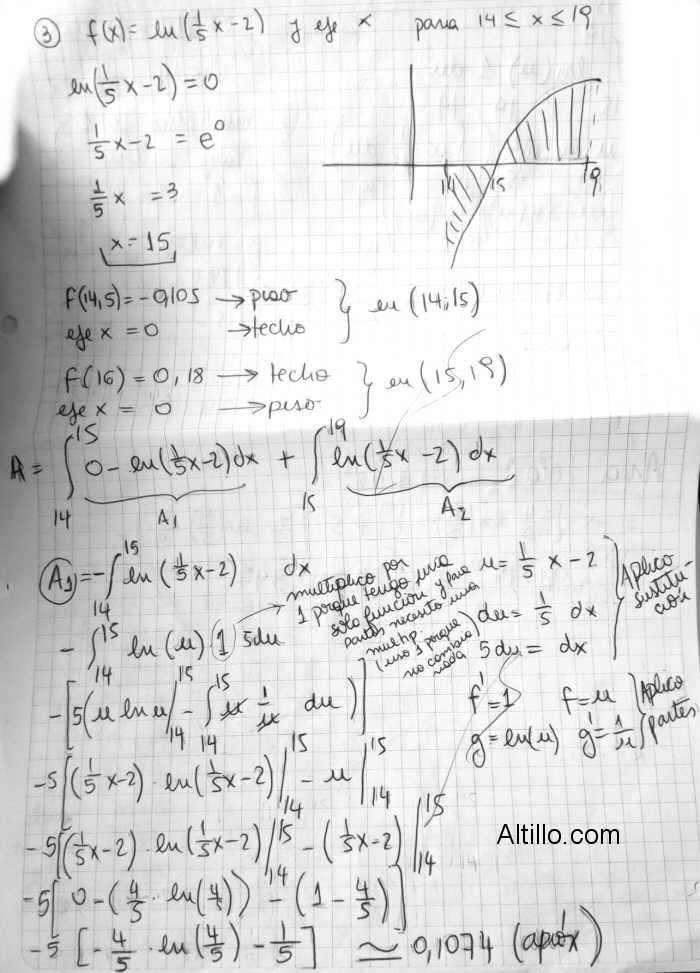 ③ f(x) = ln(1/5 x - 2) y eje x para 14 ≤ x ≤ 19
ln(1/5 x - 2) = 0
1/5 x - 2 = e^0
1/5 x = 3
x = 15
14 15 19
f(14,5) = -0,105 → piso
eje x = 0 → techo
} en (14;15)
f(16) = 0,18 → techo
eje x = 0 → piso
} en (15,19)
A = ∫_14^15 0 - ln(1/5 x - 2) dx + ∫_15^19 ln(1/5 x - 2) dx
A1 A2
A1 = - ∫_14^15 ln(1/5 x - 2) dx
- ∫_14^15 ln(u) 1 5du
multiplico por
1 porque tengo una
sólo función y para
partes necesito una
multip.
(uso 1 porque
no cambia
nada
u = 1/5 x - 2
du = 1/5 dx
5du = dx
Aplico
sustitu-
ción
-[5(u ln u |_14^15 - ∫_14^15 u 1/u du)]
f' = 1 f = u
g = ln(u) g' = 1/u
Aplico
partes
-5[(1/5 x - 2) · ln(1/5 x - 2) |_14^15 - u |_14^15
-5[(1/5 x - 2) · ln(1/5 x - 2) |_14^15 - (1/5 x - 2) |_14^15
Altillo.com
-5[0 - (4/5 · ln(4/5)) - (1 - 4/5)]
-5 [-4/5 · ln(4/5) - 1/5] ≃ 0,1074 (apróx)